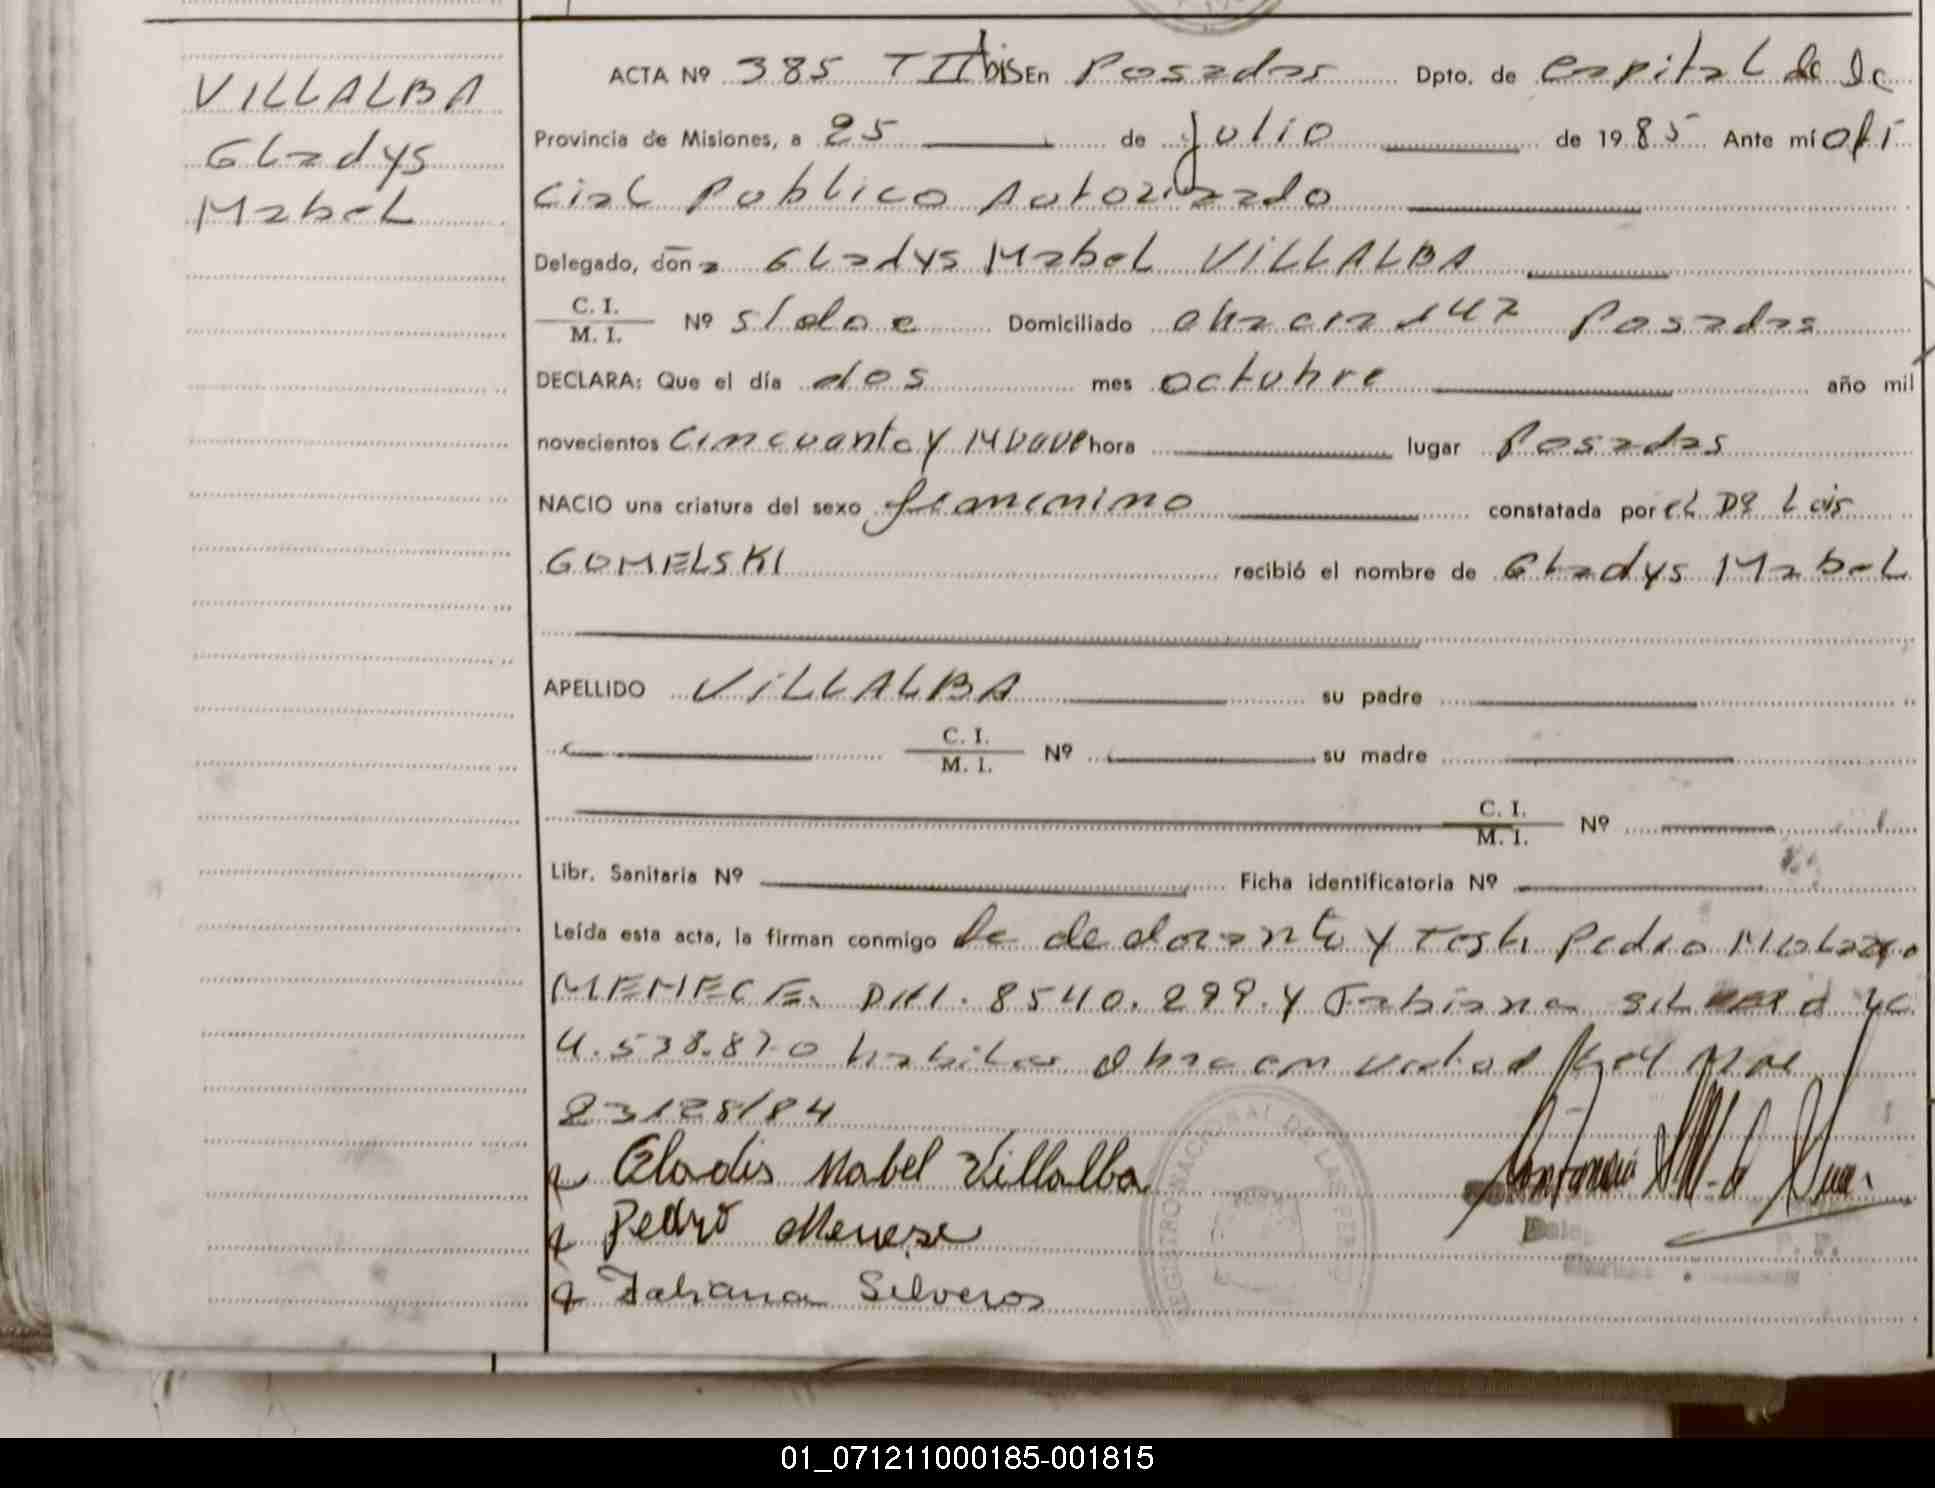 VILLALBA
Gladys
Mabel
ACTA Nº 385 T II bis En Posadas Dpto. de Capital de la
Provincia de Misiones, a 25 de julio de 1985 Ante mí Ofi
cial Publico Autorizado
Delegado, doña Gladys Mabel VILLALBA
C. I.
M. I. Nº s/doc Domiciliado chacra 147 Posadas
DECLARA: Que el día dos mes octubre año mil
novecientos cincuenta y nueve hora lugar Posadas
NACIO una criatura del sexo femenino constatada por el Dr Luis
GOMELSKI recibió el nombre de Gladys Mabel
APELLIDO VILLALBA su padre
C. I.
M. I. Nº su madre
C. I.
M. I. Nº
Libr. Sanitaria Nº Ficha identificatoria Nº
Leída esta acta, la firman conmigo la declarante y testi Pedro
DNI. 8540.299. y Fabiana LC
4.538.870 habilita Obra en virtud Ley Nac
23128/84
Gladis Mabel Villalba
Pedro Menese
Fabiana Silveros
REGISTRO NACIONAL DE LAS PER
01_071211000185-001815